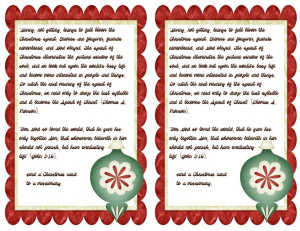 Giving, not getting, brings to full bloom the
Christmas spirit. Enemies are forgiven, friends
remembered, and God obeyed. The spirit of
Christmas illuminates the picture window of the
soul, and we look out upon the world's busy life
and become more interested in people and things.
To catch the real meaning of the spirit of
Christmas, we need only to drop the last syllable
and it becomes the Spirit of Christ! (Thomas S.
Monson)
"For God so loved the world, that he gave his
only begotten Son, that whosoever believeth in him
should not perish, but have everlasting
life" (John 3:16).
Send a Christmas card
to a missionary.
Giving, not getting, brings to full bloom the
Christmas spirit. Enemies are forgiven, friends
remembered, and God obeyed. The spirit of
Christmas illuminates the picture window of the
soul, and we look out upon the world's busy life
and become more interested in people and things.
To catch the real meaning of the spirit of
Christmas, we need only to drop the last syllable
and it becomes the Spirit of Christ! (Thomas S.
Monson)
"For God so loved the world, that he gave his
only begotten Son, that whosoever believeth in him
should not perish, but have everlasting
life" (John 3:16).
Send a Christmas card
to a missionary.